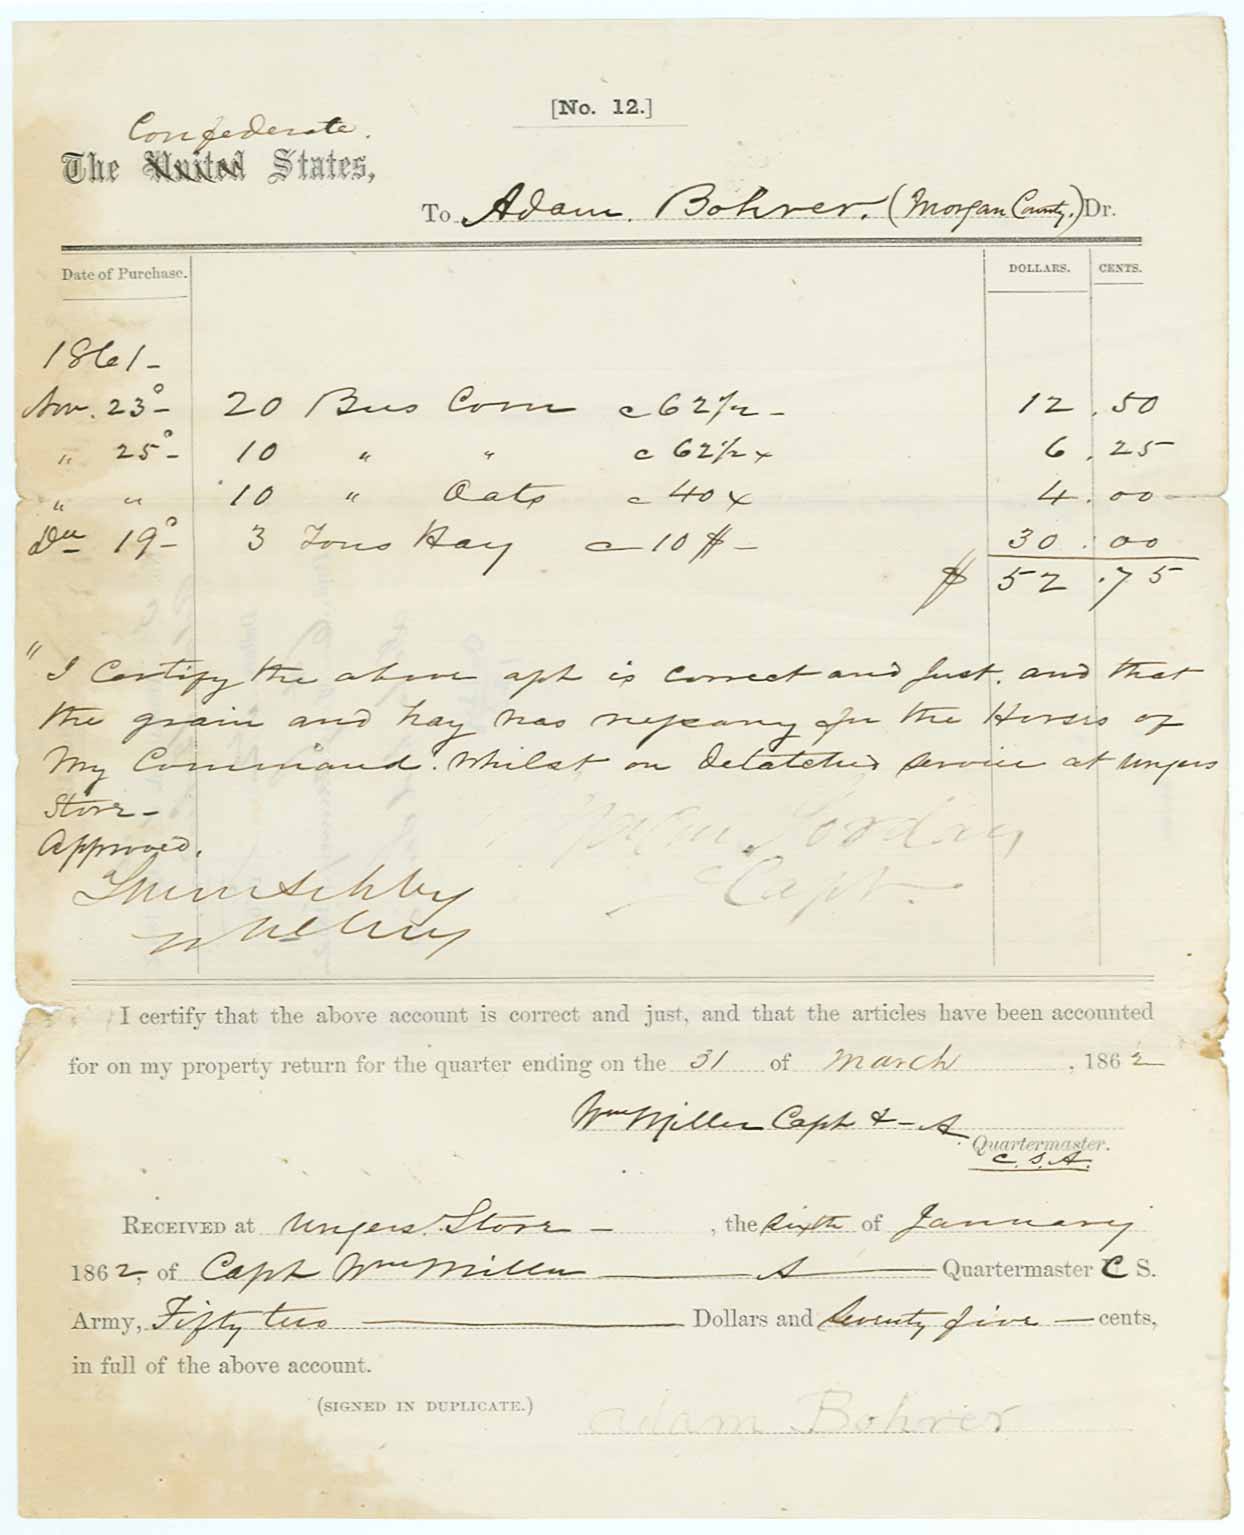 [No. 12.]
Confederate.
The United States,
To Adam. Bohrer. (Morgan County.) Dr.
Date of Purchase.
DOLLARS. CENTS.
1861-
Nov. 23° - 20 Bus Corn c 62 1/2 - 12 . 50
" 25° - 10 " " c 62 1/2 x 6 . 25
" " 10 " Oats c 40 x 4 . 00
Dec 19° - 3 Tons Hay c 10 $ - 30 . 00
$ 52 . 75
" I certify the above apt is correct and just. and that
the grain and hay was nessary for the Horses of
My Command. Whilst on Detatched service at Ungers
Store-
Approved.
Ashby
Jordan
Capt.
I certify that the above account is correct and just, and that the articles have been accounted
for on my property return for the quarter ending on the 31 of March , 1862
Wm Miller Capt & - A.
Quartermaster.
C. S. A.
RECEIVED at Ungers Store - , the sixth of January
1862, of Capt Wm Miller A Quartermaster C S.
Army, Fifty two Dollars and seventy five cents,
in full of the above account.
(SIGNED IN DUPLICATE.)
Adam Bohrer